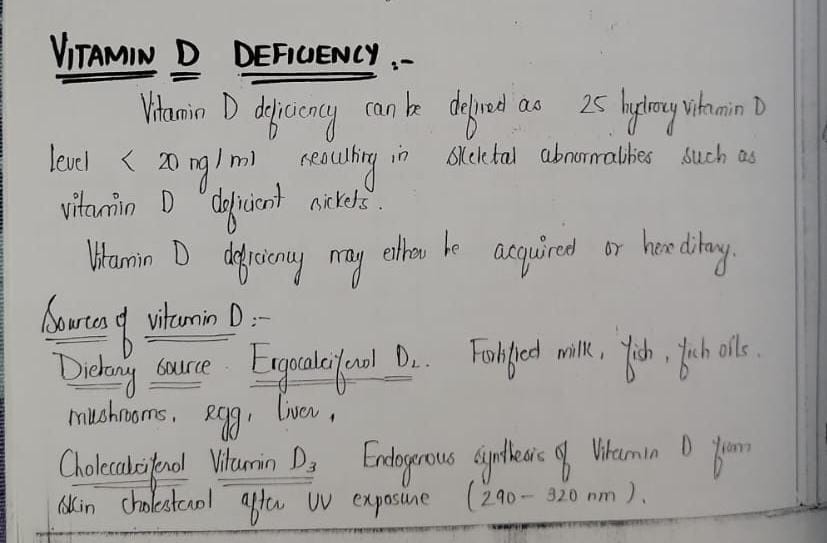 VITAMIN D DEFICIENCY :-
Vitamin D deficiency can be defined as 25 hydroxy vitamin D
level < 20 ng / ml resulting in skeletal abnormalities such as
vitamin D deficient rickets.
Vitamin D deficiency may either be acquired or hereditary.
Sources of vitamin D :-
Dietary source . Ergocalciferol D2. Fortified milk, fish, fish oils.
mushrooms, egg, liver,
Cholecalciferol Vitamin D3 Endogenous synthesis of Vitamin D from
skin cholesterol after UV exposure (290 - 320 nm).